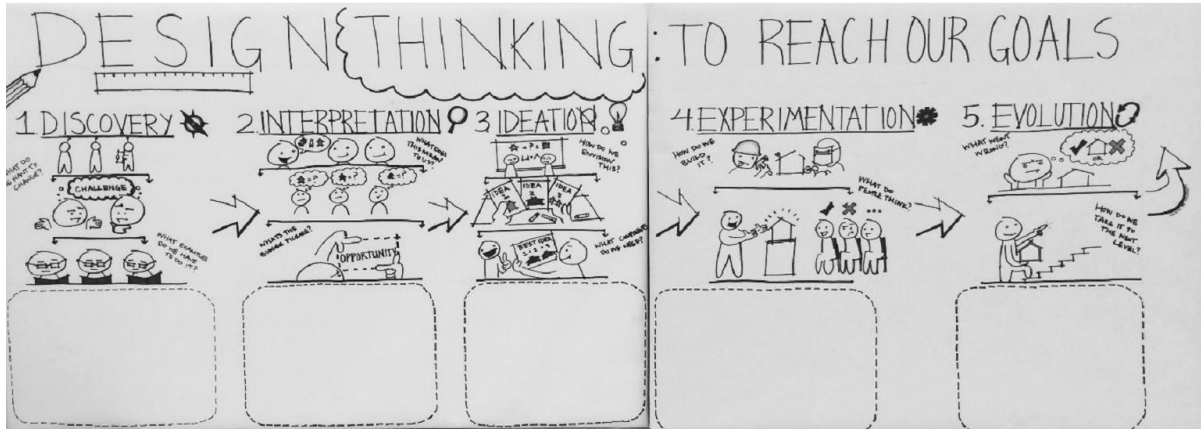 DESIGN THINKING : TO REACH OUR GOALS
1. DISCOVERY
WHAT DO
WE WANT TO
CHANGE?
CHALLENGE
WHAT EXAMPLES
DO WE HAVE
TO DO IT?
2. INTERPRETATION
WHAT DOES
THIS MEAN
TO US?
WHATS THE
BIGGER PICTURE?
OPPORTUNITY
3. IDEATION
HOW DO WE
ENVISION
THIS?
IDEA
1
IDEA
2
IDEA
3
BEST IDEA
WHAT
DO WE NEED?
4. EXPERIMENTATION
HOW DO WE
BUILD IT?
WHAT DO
PEOPLE THINK?
...
5. EVOLUTION
WHAT WENT
WRONG?
OR
HOW DO WE
TAKE IT TO
THE NEXT
LEVEL?